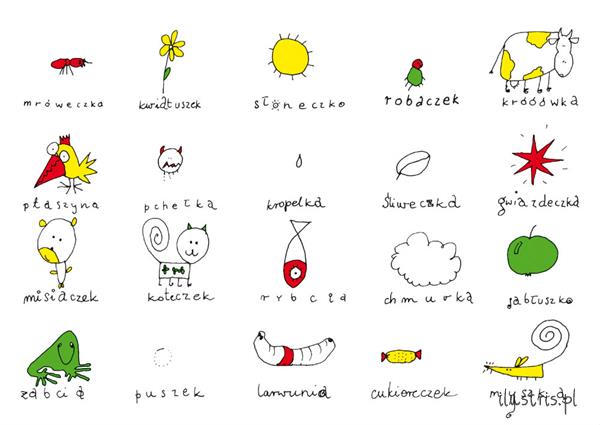 mróweczka kwiatuszek słoneczko robaczek króóówka
ptaszyna pchełka kropelka śliweczka gwiazdeczka
misiaczek koteczek rybcia chmurka jabłuszko
żabcia puszek larwunia cukiereczek
ilustris.pl